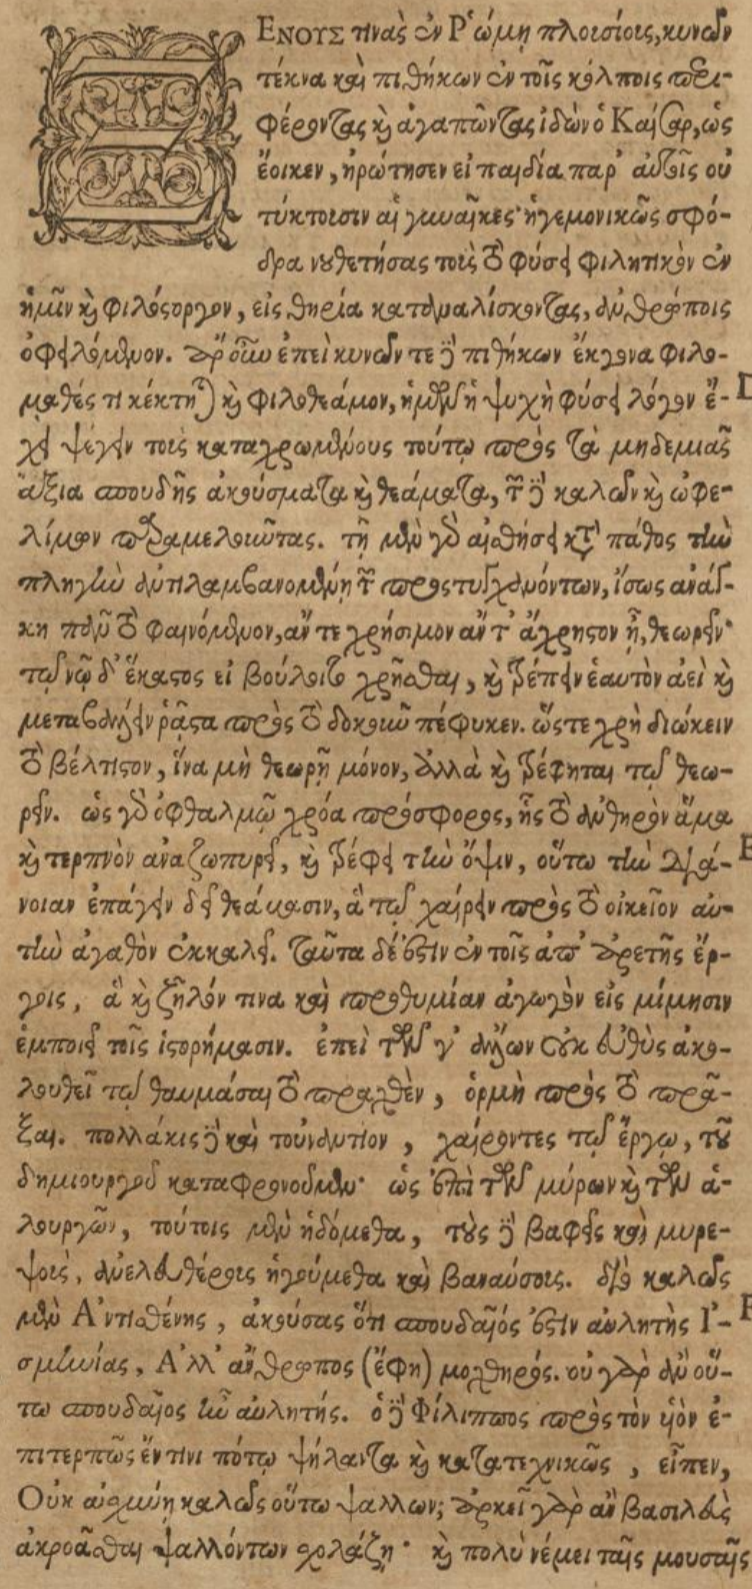 ΞΕΝΟΥΣ τινὰς ἐν Ῥώμῃ πλουσίοις, κυνῶν
τέκνα καὶ πιθήκων ἐν τοῖς κόλποις περι-
φέροντας καὶ ἀγαπῶντας ἰδὼν ὁ Καῖσαρ, ὡς
ἔοικεν, ἠρώτησεν εἰ παιδία παρ' αὐτοῖς οὐ
τίκτουσιν αἱ γυναῖκες· ἡγεμονικῶς σφό-
δρα νουθετήσας τοὺς τὸ φύσει φιλητικὸν ἐν
ἡμῖν καὶ φιλόστοργον, εἰς θηρία καταναλίσκοντας, ἀνθρώποις
ὀφειλόμενον. ἆρ' οὖν ἐπεὶ κυνῶν τε δὲ πιθήκων ἔκγονα φιλο-
μαθές τι κέκτηται καὶ φιλοθεάμον, ἡμῶν ἡ ψυχὴ φύσει λόγον ἔ- D
χει ψέγειν τοὺς καταχρωμένους τούτῳ πρὸς τὰ μηδεμιᾶς
ἄξια σπουδῆς ἀκούσματα καὶ θεάματα, τῶν δὲ καλῶν καὶ ὠφε-
λίμων παραμελοῦντας. τῇ μὲν γὰρ αἰσθήσει κατὰ πάθος τὴν
πληγὴν ἀντιλαμβανομένῃ τῶν προστυγχανόντων, ἴσως ἀνάγ-
κη πᾶν τὸ φαινόμενον, ἄν τε χρήσιμον ἄν τ' ἄχρηστον ᾖ, θεωρεῖν·
τῷ νῷ δ' ἕκαστος εἰ βούλοιτο χρῆσθαι, καὶ τρέπειν ἑαυτὸν ἀεὶ καὶ
μεταβάλλειν ῥᾷστα πρὸς τὸ δοκοῦν πέφυκεν. ὥστε χρὴ διώκειν
τὸ βέλτιστον, ἵνα μὴ θεωρῇ μόνον, ἀλλὰ καὶ τρέφηται τῷ θεω-
ρεῖν. ὡς γὰρ ὀφθαλμῷ χρόα πρόσφορος, ἧς τὸ ἀνθηρὸν ἅμα
καὶ τερπνὸν ἀναζωπυρεῖ, καὶ τρέφει τὴν ὄψιν, οὕτω τὴν διά- E
νοιαν ἐπάγειν δεῖ θεάμασιν, ἃ τῷ χαίρειν πρὸς τὸ οἰκεῖον αὐ-
τὴν ἀγαθὸν ἐκκαλεῖ. ταῦτα δέ ἐστιν ἐν τοῖς ἀπ' ἀρετῆς ἔρ-
γοις, ἃ καὶ ζῆλόν τινα καὶ προθυμίαν ἀγωγὸν εἰς μίμησιν
ἐμποιεῖ τοῖς ἱστορήμασιν. ἐπεὶ τῶν γ' ἄλλων οὐκ εὐθὺς ἀκο-
λουθεῖ τῷ θαυμάσαι τὸ πραχθὲν, ὁρμὴ πρὸς τὸ πρᾶ-
ξαι. πολλάκις δὲ καὶ τοὐναντίον, χαίροντες τῷ ἔργῳ, τοῦ
δημιουργοῦ καταφρονοῦμεν· ὡς ἐπὶ τῶν μύρων καὶ τῶν ἁ-
λουργῶν, τούτοις μὲν ἡδόμεθα, τοὺς δὲ βαφεῖς καὶ μυρε-
ψοὺς, ἀνελευθέρους ἡγούμεθα καὶ βαναύσους. διὸ καλῶς
μὲν Ἀντισθένης, ἀκούσας ὅτι σπουδαῖός ἐστιν αὐλητὴς Ἰ- F
σμηνίας, Ἀλλ' ἄνθρωπος (ἔφη) μοχθηρός. οὐ γὰρ ἂν οὕ-
τω σπουδαῖος ἦν αὐλητής. ὁ δὲ Φίλιππος πρὸς τὸν υἱὸν ἐ-
πιτερπῶς ἔν τινι πότῳ ψήλαντα καὶ κατατεχνικῶς, εἶπεν,
Οὐκ αἰσχύνῃ καλῶς οὕτω ψάλλων; ἀρκεῖ γὰρ ἂν βασιλεὺς
ἀκροᾶσθαι ψαλλόντων σχολάζῃ· καὶ πολὺ νέμει ταῖς μούσαις